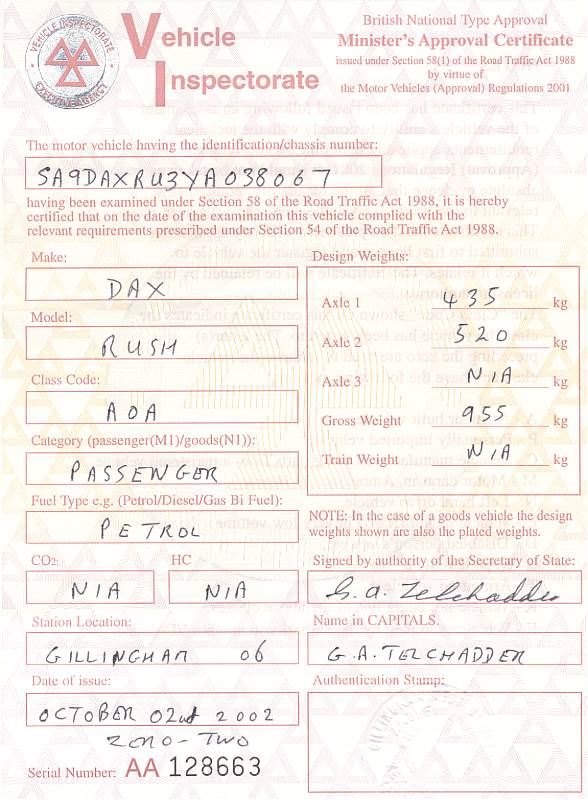 VEHICLE INSPECTORATE
EXECUTIVE AGENCY
Vehicle
Inspectorate
British National Type Approval
Minister's Approval Certificate
issued under Section 58(1) of the Road Traffic Act 1988
by virtue of
the Motor Vehicles (Approval) Regulations 2001
The motor vehicle having the identification/chassis number:
SA9DAXRU3YA038067
having been examined under Section 58 of the Road Traffic Act 1988, it is hereby
certified that on the date of the examination this vehicle complied with the
relevant requirements prescribed under Section 54 of the Road Traffic Act 1988.
Make:
DAX
Model:
RUSH
Class Code:
A0A
Category (passenger(M1)/goods(N1)):
PASSENGER
Fuel Type e.g. (Petrol/Diesel/Gas Bi Fuel):
PETROL
CO2: HC
N/A N/A
Station Location:
GILLINGHAM 06
Date of issue:
OCTOBER 02nd 2002
ZERO-TWO
Serial Number: AA 128663
Design Weights:
Axle 1 435 kg
Axle 2 520 kg
Axle 3 N/A kg
Gross Weight 955 kg
Train Weight N/A kg
NOTE: In the case of a goods vehicle the design
weights shown are also the plated weights.
Signed by authority of the Secretary of State:
G. A. Telchadder
Name in CAPITALS.
G. A. TELCHADDER
Authentication Stamp: